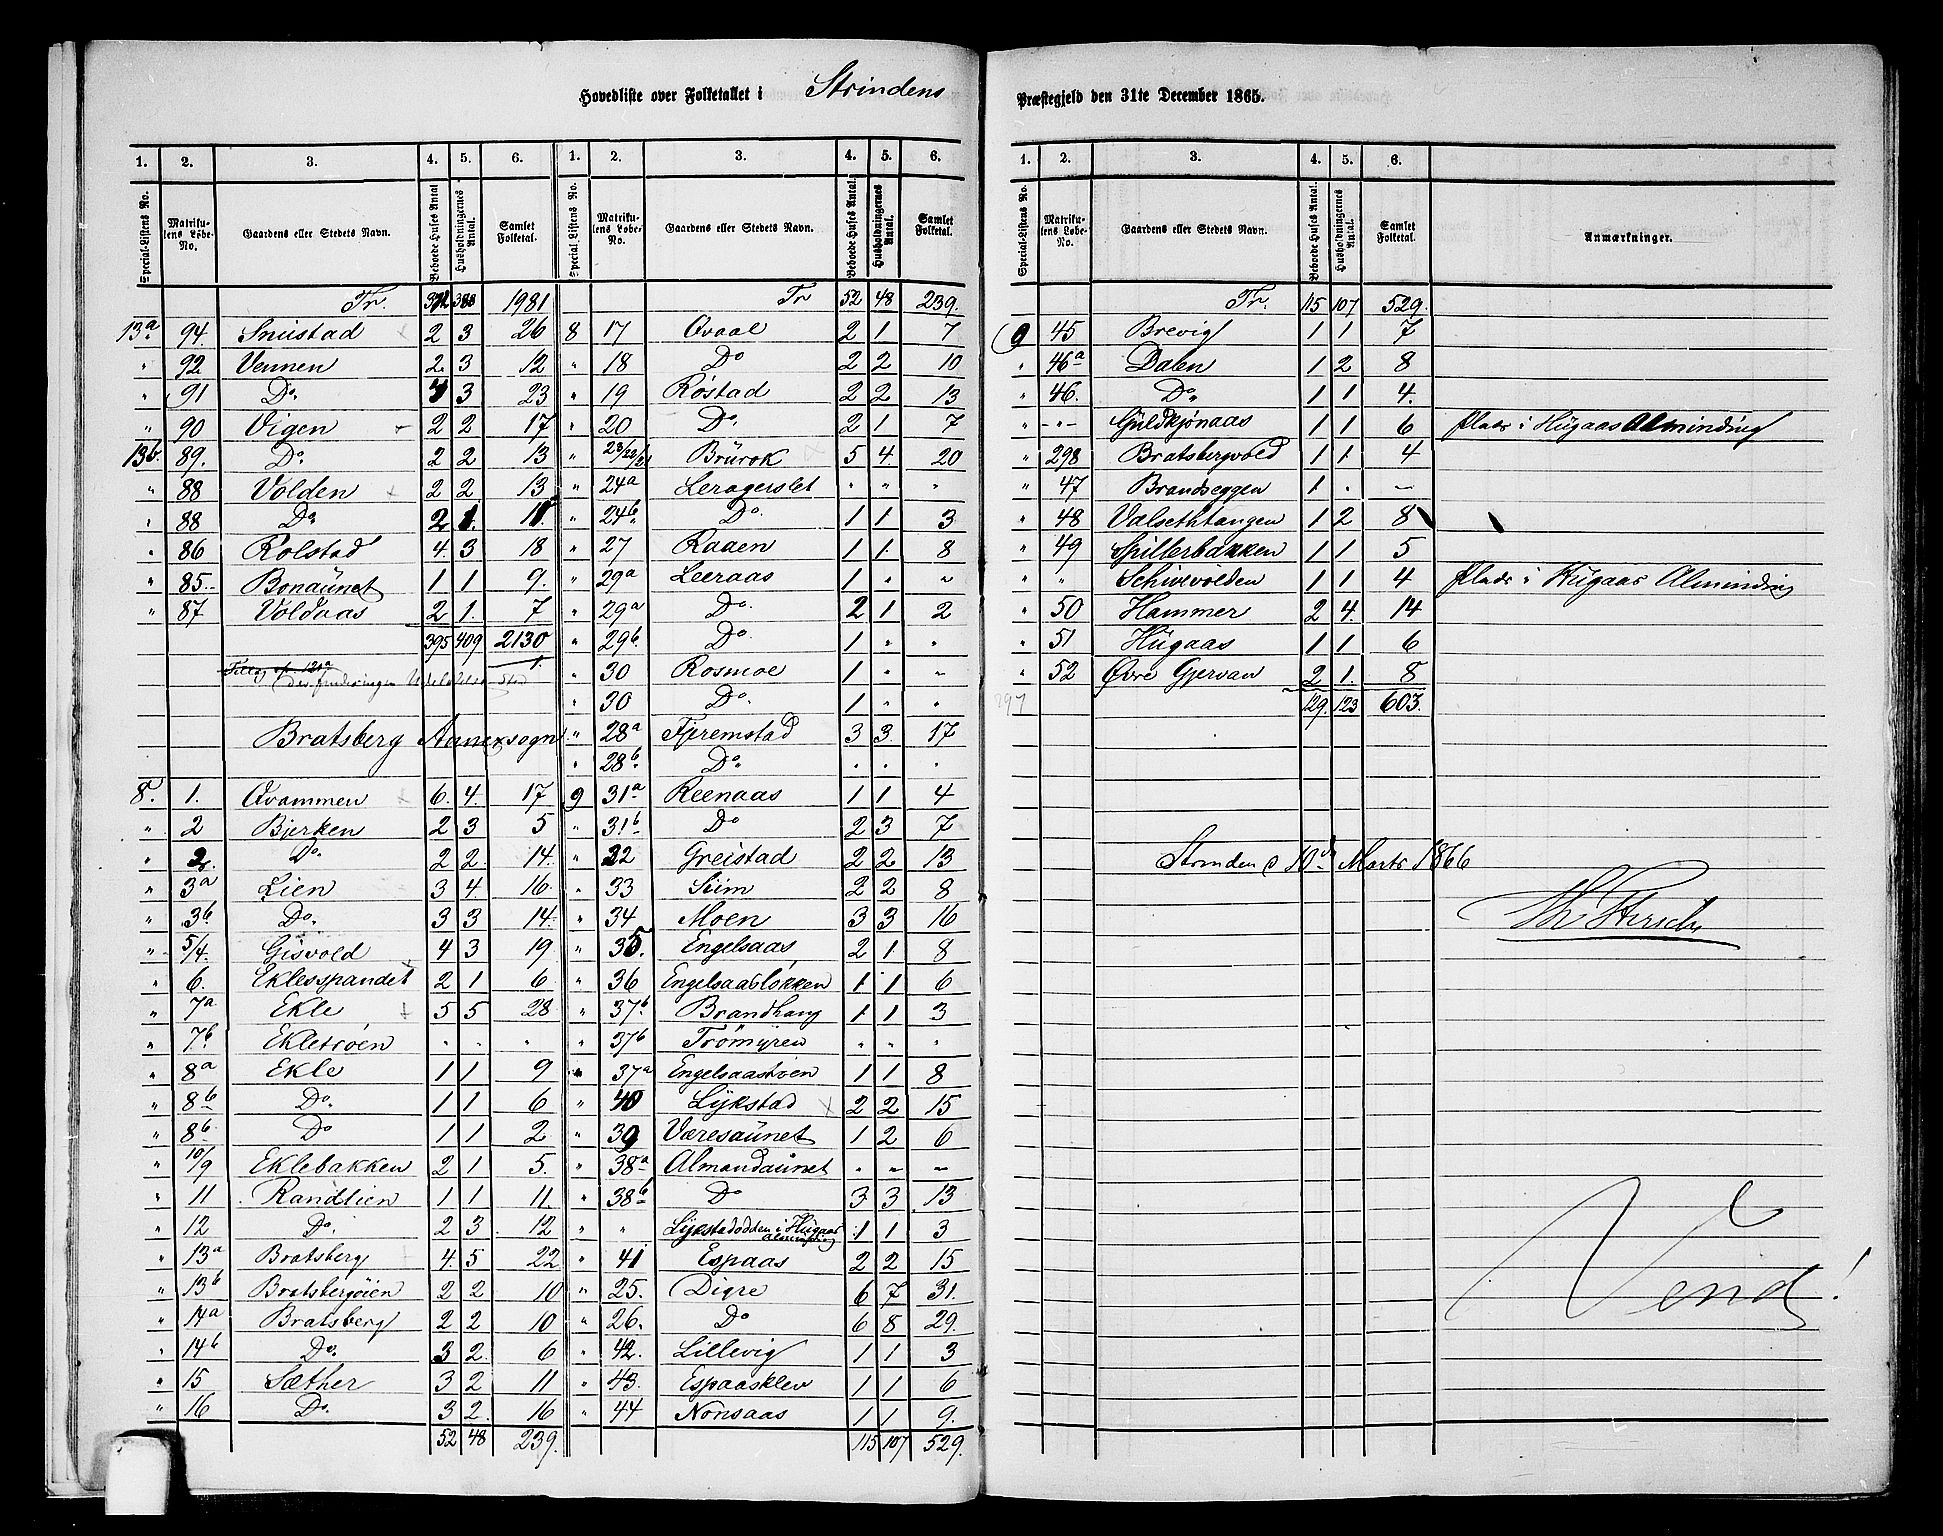 Hovedliste over Folketallet i Strindens
1. 2. 3. 4. 5. 6. 1. 2. 3. 4. 5. 6.
Special-Listens No. Matrikulens Løbe-No. Gaardens eller Stedets Navn. Beboede Huses Antal Husholdningernes Antal. Samlet Folketal. Special-Listens No. Matrikulens Løbe-No. Gaardens eller Stedets Navn. Beboede Huses Antal. Husholdningernes Antal. Samlet Folketal.
Tr. 388 1981
13a 94 Snustad 2 3 26
" 92 Vennen 2 3 12
" 91 Do 3 23
" 90 Vigen 2 2 17
13b. 89. Do. 2 2 13
" 88 Volden 2 2 13
" 88 Do 2 1.
" 86 Rolstad 4. 3 18
" 85. Bonaünet 1 1 9.
" 87 Voldaas 2 1. 7
395 409 2130
1.
Bratsberg Annexsogn
8. 1. Qvammen 6. 4. 17
" 2 Bjerken 2 3 5
" 2. Do. 2 2. 14.
" 3a Lien 3 4 16.
" 3b. Do. 3 3 14.
" 5/4. Gisvold 4 3 19
" 6. Eklesspandet 2 1 6
" 7a Ekle 5 5 28
" 7b. Ekletrøen " " "
" 8a Ekle 1 1 9
" 8b Do. 1 1 6
" 8b. Do 1 1 2
" 10/9 Eklebakken 2 1 5.
" 11 Randlien 1 1 11.
" 12 Do. 2 3 12
" 13a Bratsberg 4. 5 22
" 13b Bratsbergøien 2 2 10
" 14a Bratsberg 2 2 10
" 14b Do. 3 2. 6
" 15 Sæther 3 2 11
" 16 Do. 3 2. 16
52 48 239.
Tr 52 48 239.
8 17 Qvaal 2 1 7
" 18 Do 2 2 10
" 19 Røstad 2 2 13
" 20 Do. 2 1 7
" 23/22/21 Brürok 5 4. 20
" 24a Leragerslet " " "
" 24b. Do. 1 1 3
" 27 Raaen 1 1. 8
" 29a Leeraas 1 " "
" 29a Do. 2 1 2
" 29b Do. 1 " "
" 30 Rosmoe 1 " "
" 30 Do. 1 " "
" 28a Fjeremstad 3 3. 17
28b. Do. " " "
9 31a Reenaas 1 1 4
" 31b Do 2 3 7
" 32 Greistad 2 2 13
" 33 Siim 2 2 8
" 34 Moen 3 3 16
" 35. Engelsaas 2 1. 8
" 36 Engelsaasløkken 1 1 6
" 37b. Brandhaug 1 1 3
" 37b Trømyren " " "
" 37a Engelsaastøen 1 1 8
" 40 Lykstad 2 2 15
" 39 Væresaünet 1 2 6
" 38a Almandaünet " " "
" 38b Do 3 3 13
" " Lykstadødden i Hügaas Alminding 1 1 3
" 41 Espaas 2 2 15
" 25. Digre 6 7 31.
" 26. Do 6 8 29.
" 42. Lillevig 1 1 3
" 43. Espaasklev 1 1 6
" 44 Nonsaas 1 1 9.
115 107 529.
Præstegjeld den 31te December 1865.
1. 2. 3. 4. 5. 6.
Special-Listens No. Matrikulens Løbe-No. Gaardens eller Stedets Navn. Beboede Huses Antal. Husholdningernes Antal. Samlet Folketal. Anmærkninger.
Tr. 115 107 529.
9 45 Brevig 1 1 7
" 46a Dalen 1 2 8
" 46. Do 1 1 4.
" -"- Guldkjønaas 1 1 6 plads i Hügaas Alminding
" 298 Bratsbergvold 1 1. 4
" 47 Brandseggen 1 " "
" 48 Valsethtangen 1 2 8
" 49 Spillerbakken 1 1 5
" " Schivevolden 1 1 4 plads i Hügaas Alminding
" 50 Hammer 2 4. 14
" 51 Hügaas 1 1 6
" 52 Øvre Gjervan 2 1. 8
297 129. 123 603.
Strinden d 10de Marts 1866
Vend!